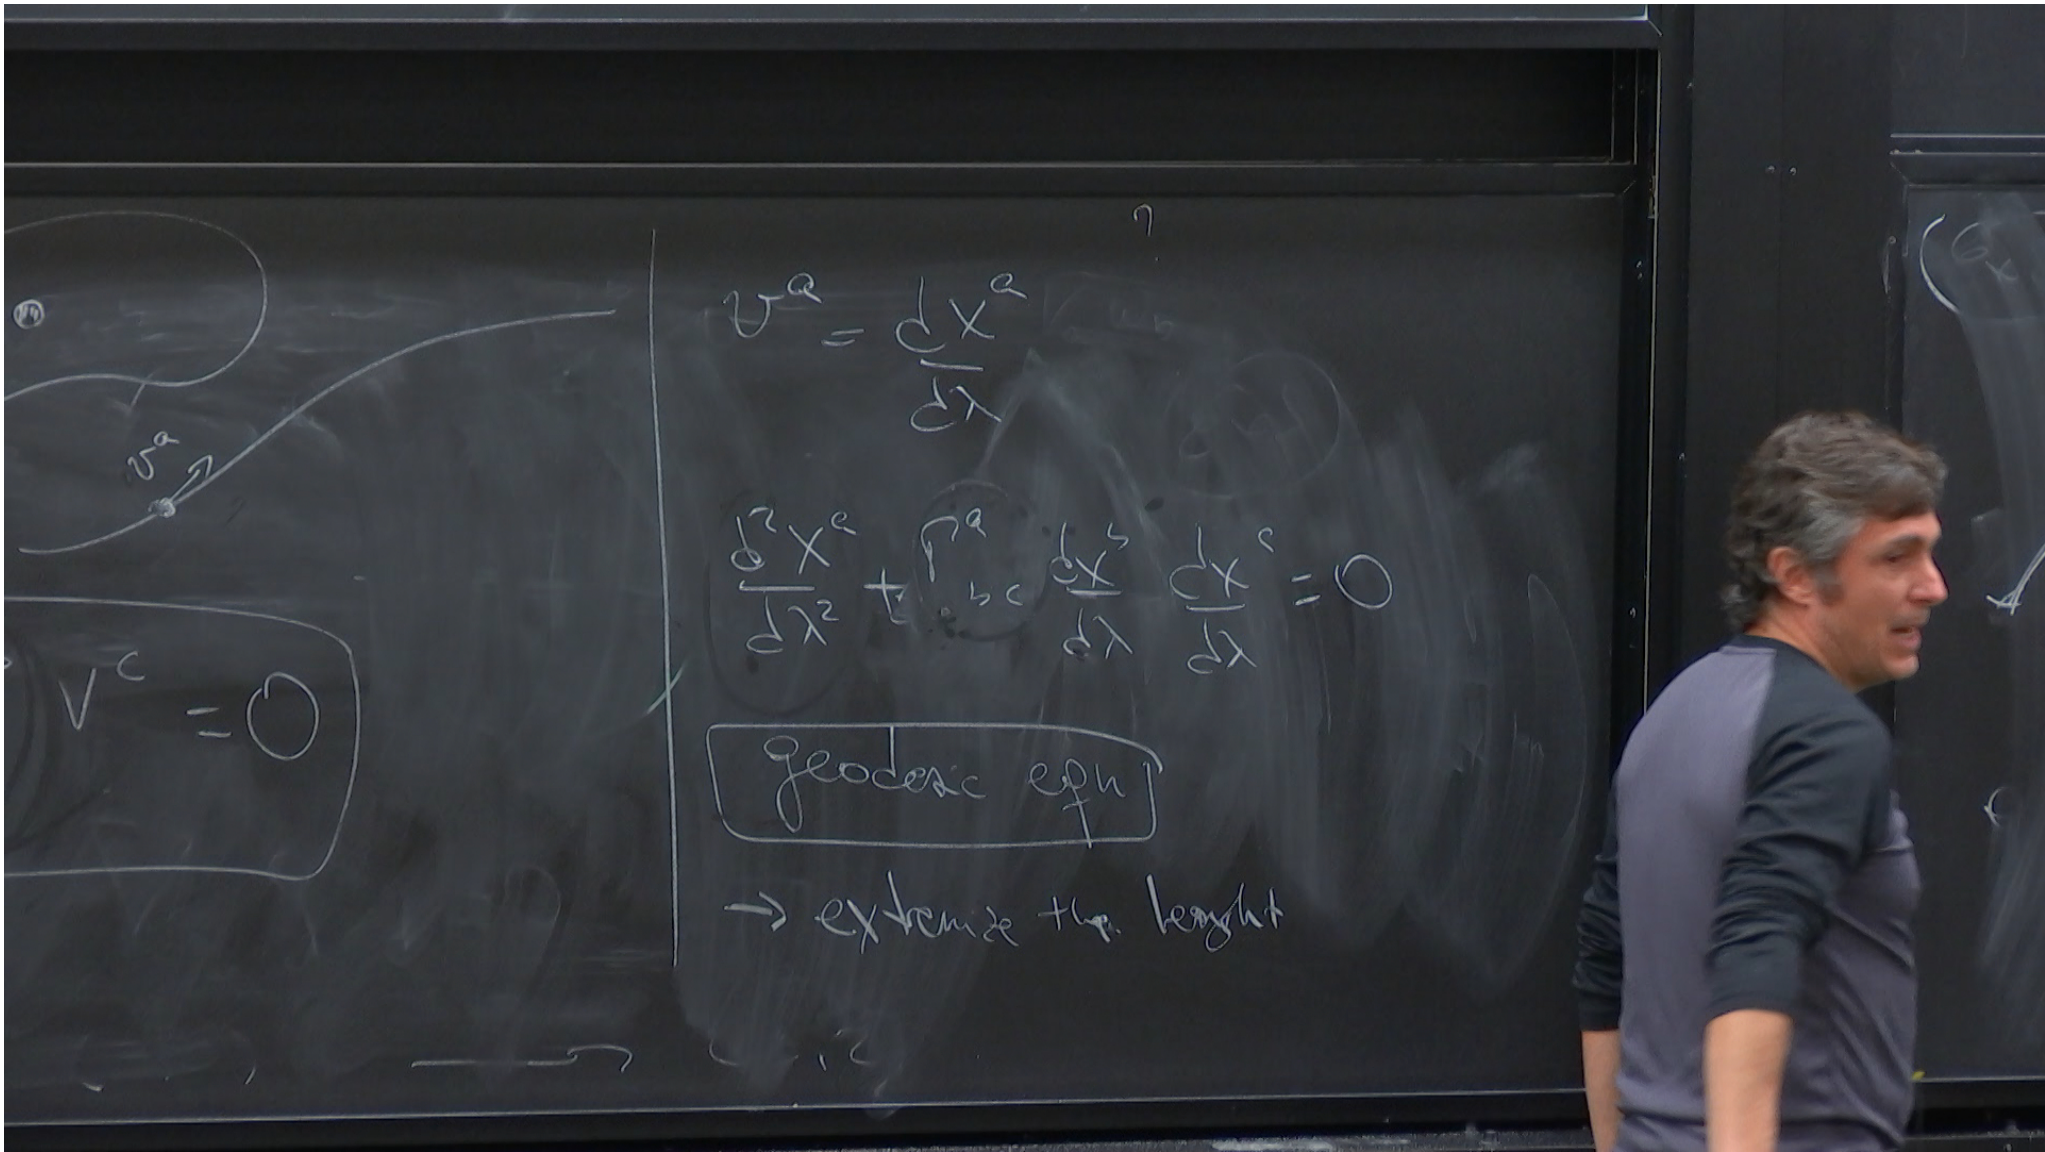 v^a
V^c = 0
v^a = dx^a/dλ
d²x^a/dλ² + Γ^a_bc dx^b/dλ dx^c/dλ = 0
geodesic eqn
→ extremize the lenght